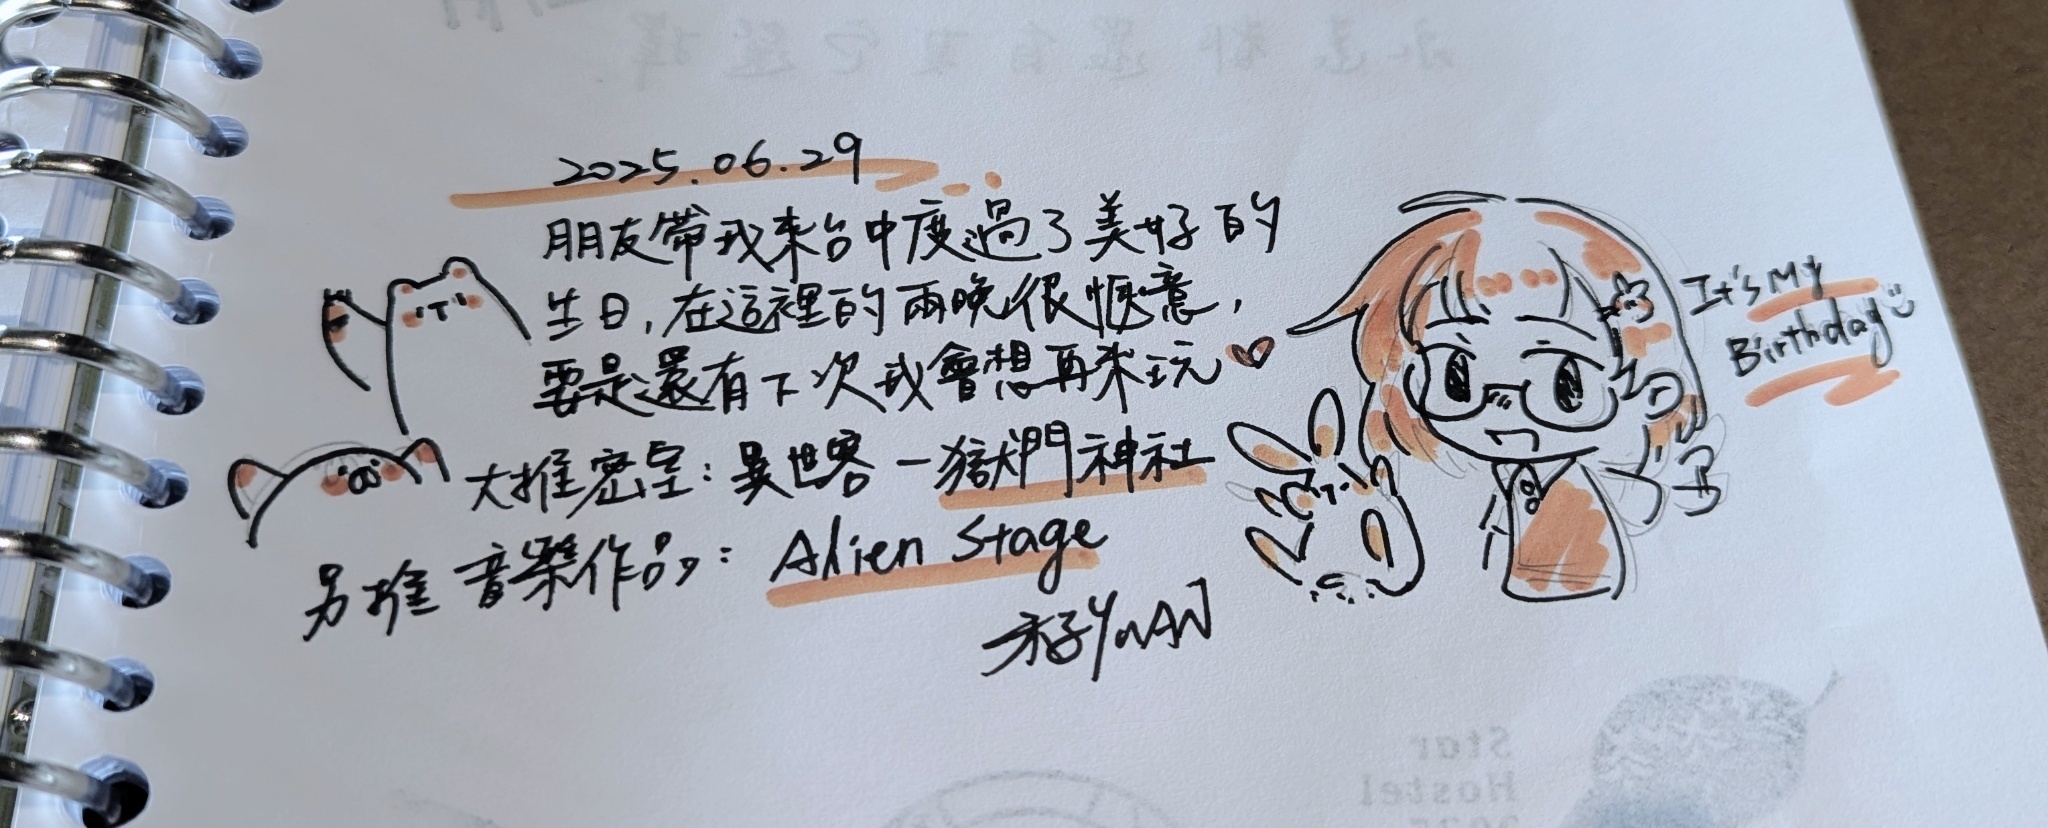 2025.06.29
朋友帶我來台中度過了美好的
生日,在這裡的兩晚很愜意,
要是還有下次我會想再來玩
大推密室:異世客-獄門神社
另推音樂作品:Alien Stage
YuAN
It's My
Birthday
Star
Hostel